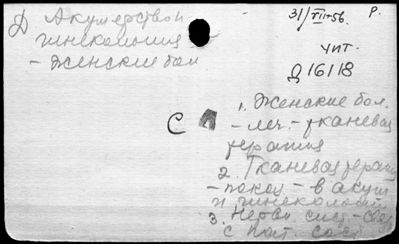 Д Акушерство и
гинекология
- Женские бол
31/VII-56. Р.
чит.
Д 16118
С
1. Женские бол.
- леч. - тканевая
терапия
2. Тканевая терап
- показ - в акуш
и гинекологии
3. Нервн. сист. -
с пат. сост